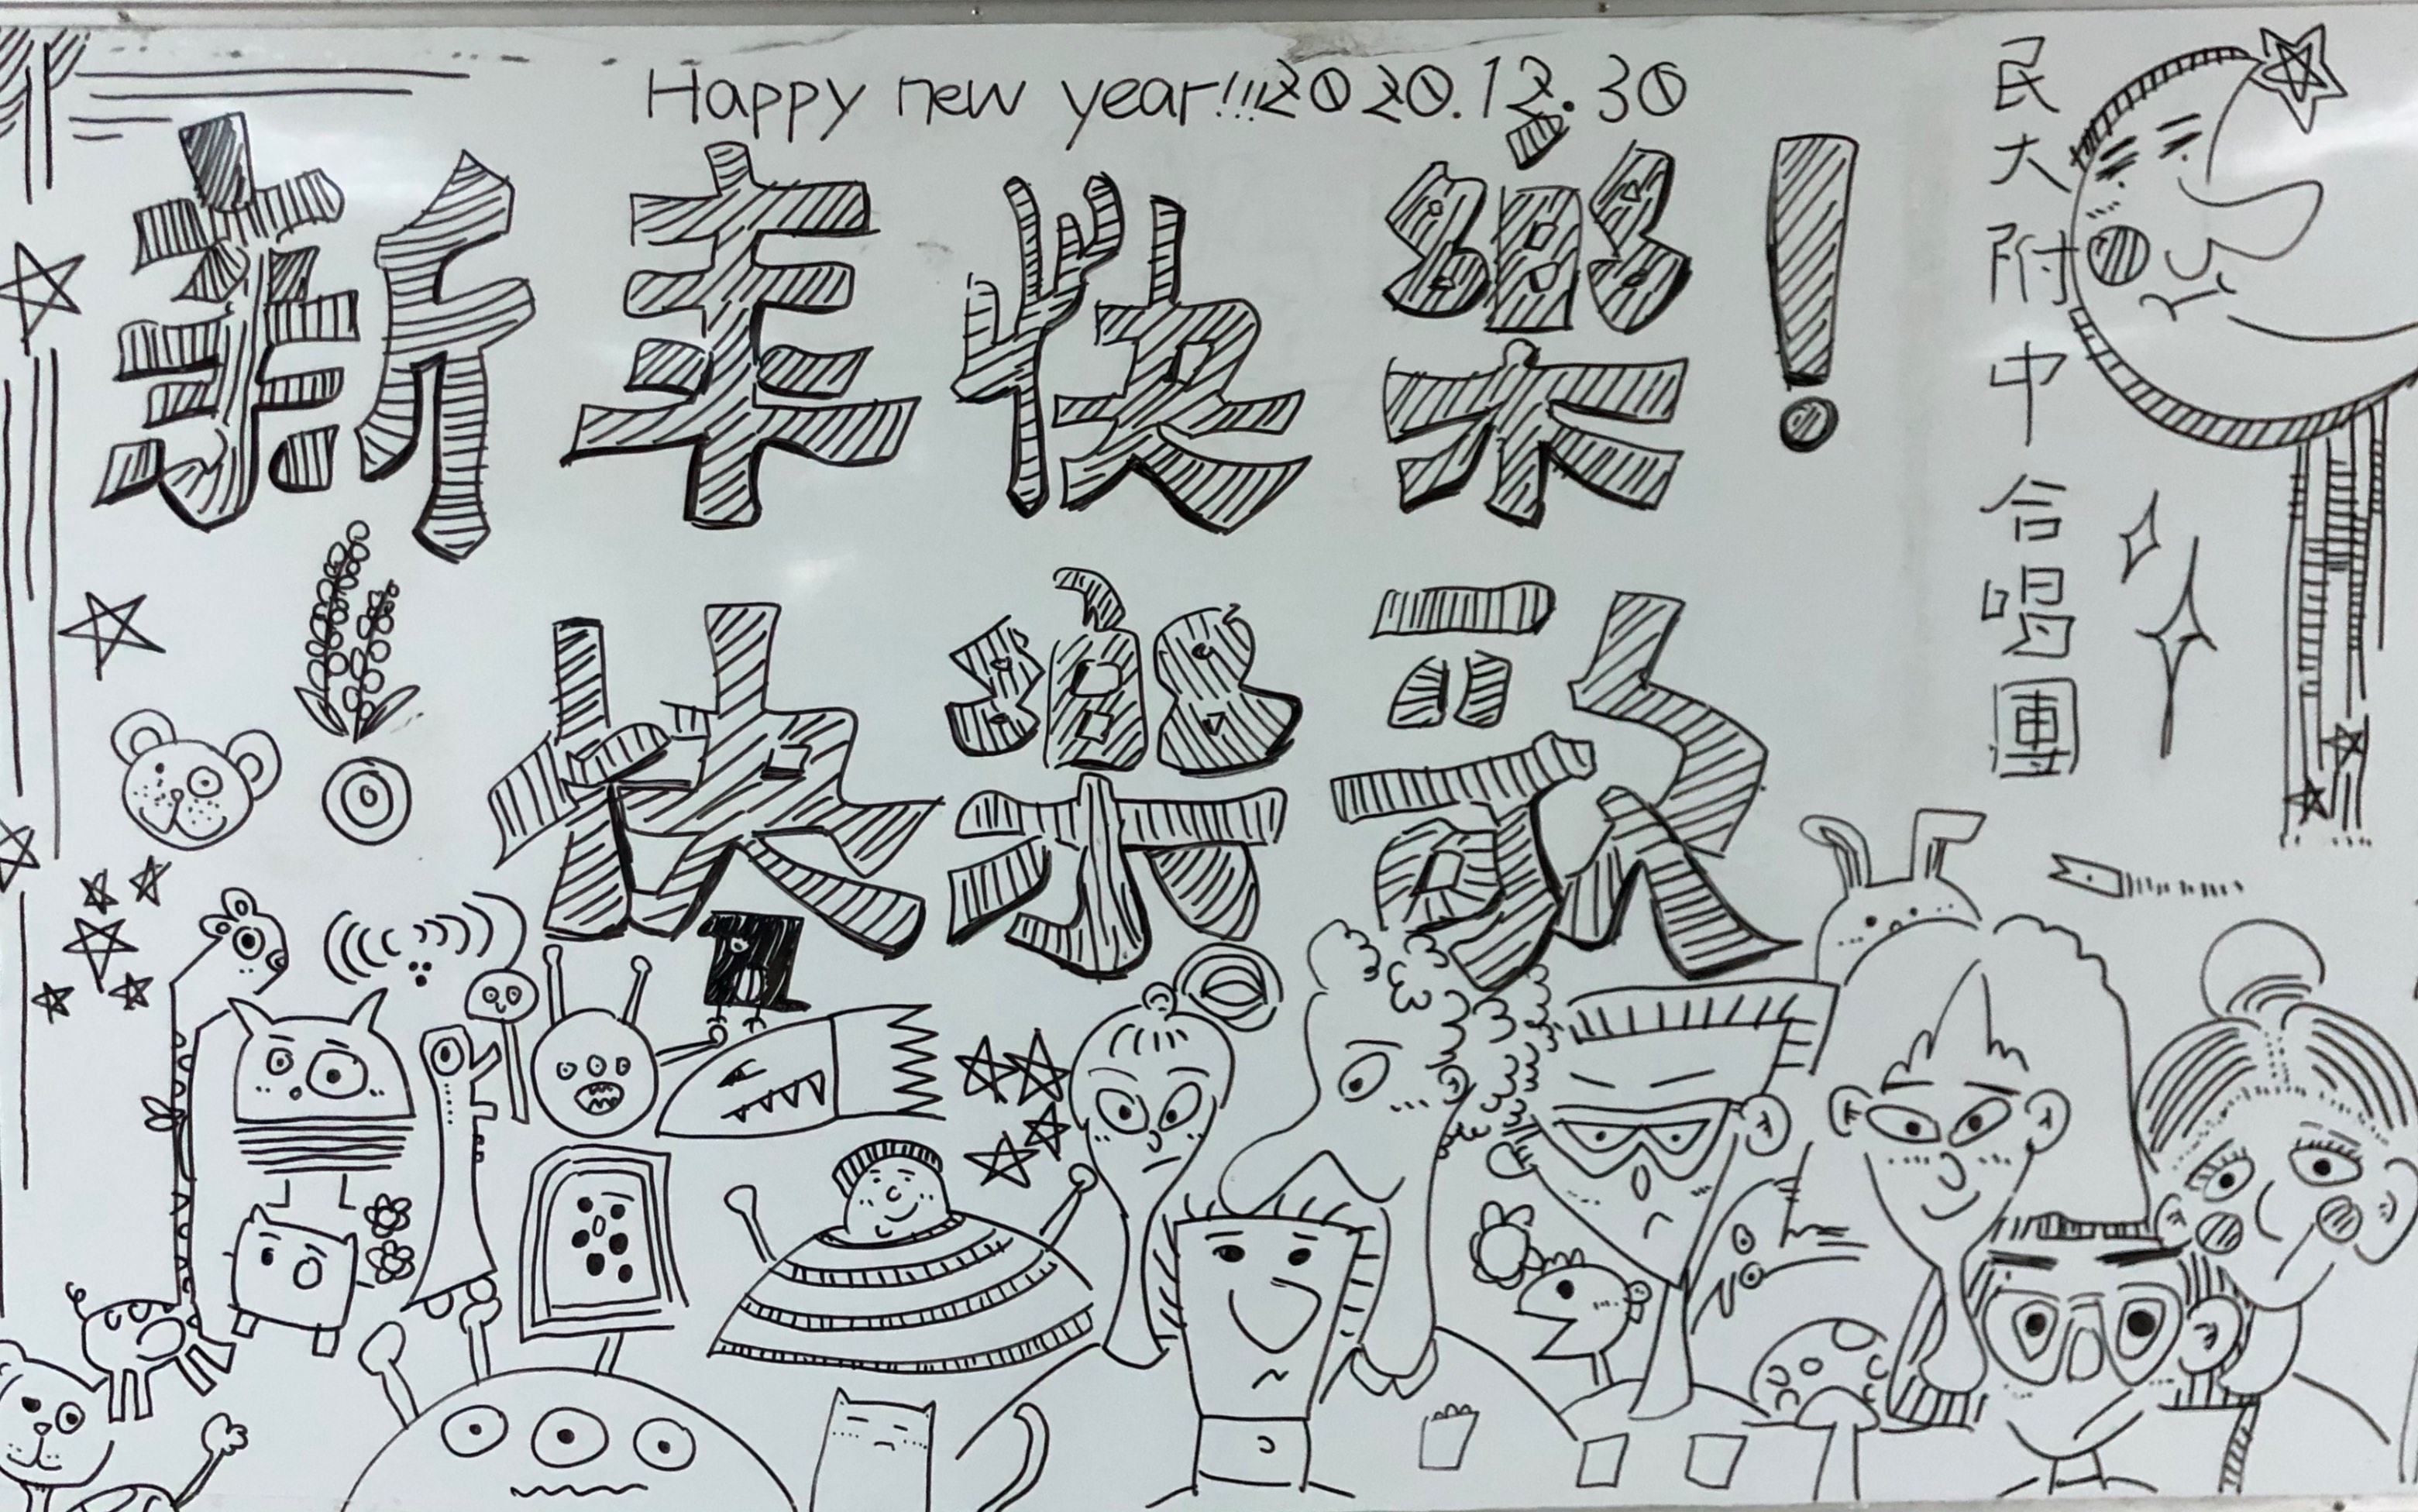 Happy new year!!!2020.12.30
新年快樂!
快樂歌
民大附中合唱團